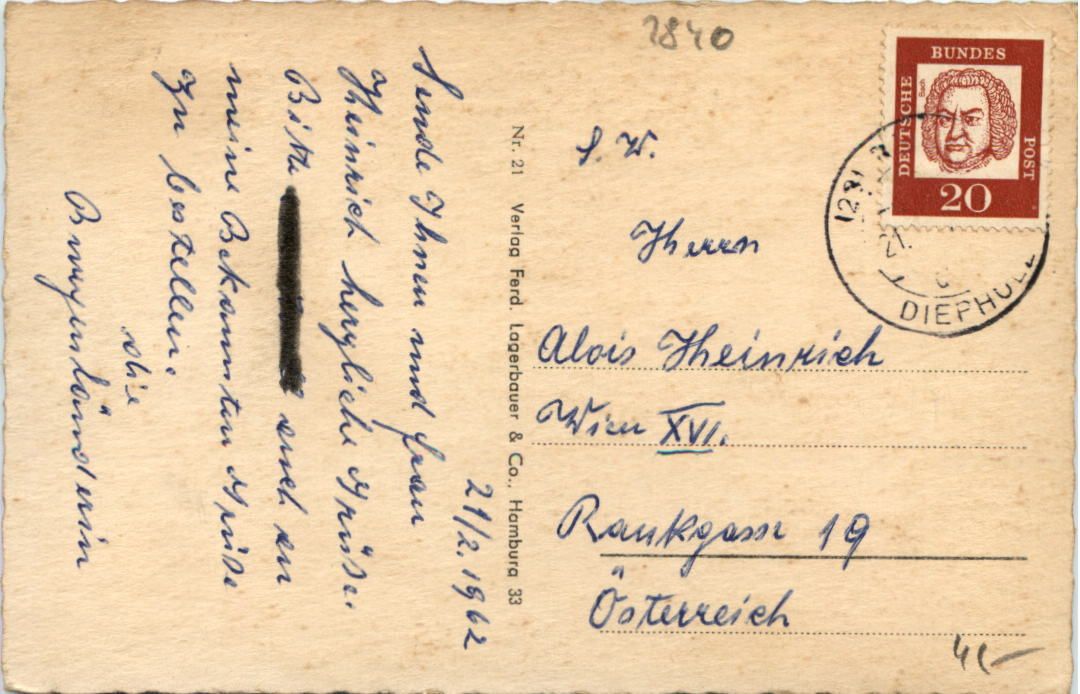 2840
BUNDES
DEUTSCHE
POST
Bach
20
DIEPHOLZ
21.
P. W.
Herrn
Alois Heinrich
Wien XVI.
Rankgasse 19
Österreich
4,-
Nr. 21 Verlag Ferd. Lagerbauer & Co., Hamburg 33
21/2. 1962
Sende Ihnen und Frau
Heinrich herzliche Grüße.
Bitte auch an
meine Bekannten Grüße
zu bestellen.
die
Burgenländerin